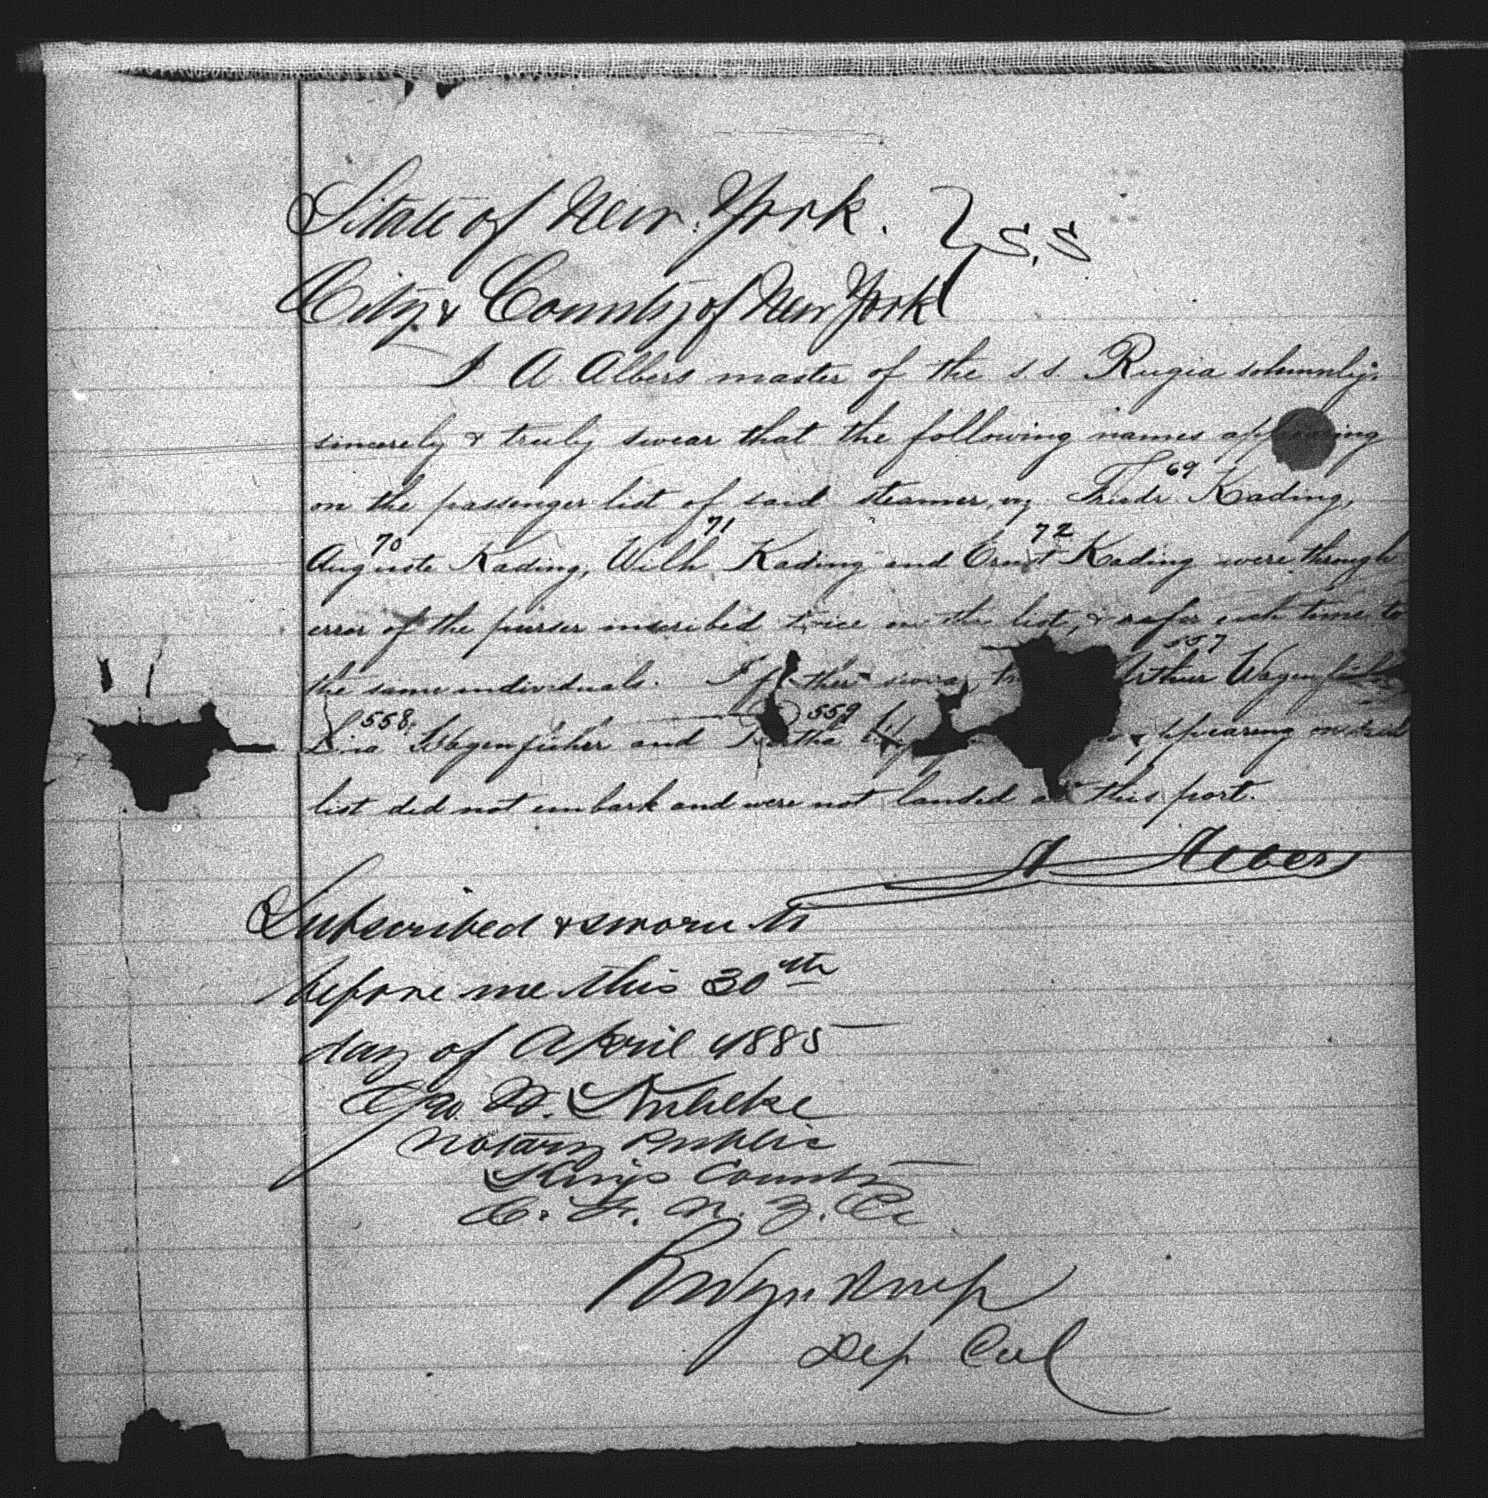 State of New York. } S.S
City & County of New York
I A. Albers master of the s.s. Rugia solemnly,
sincerely & truly swear that the following names appearing
69
on the passenger list of said steamer, viz Friedr. Kading,
70 71 72
Auguste Kading, Wilh Kading and Ernst Kading were through
error of the purser inscribed twice on the list, & refer each time to
557
the same individuals. I further swear, Arthur Wagenfisher
558 559
Lina Wagenfisher and appearing on said
list did not embark and were not landed at this port.
A Albers
Subscribed & sworn to
before me this 30th
day of April 1885
Geo. W.
Notary Public
Kings County
C. F. N. Y. Co
Dep Col